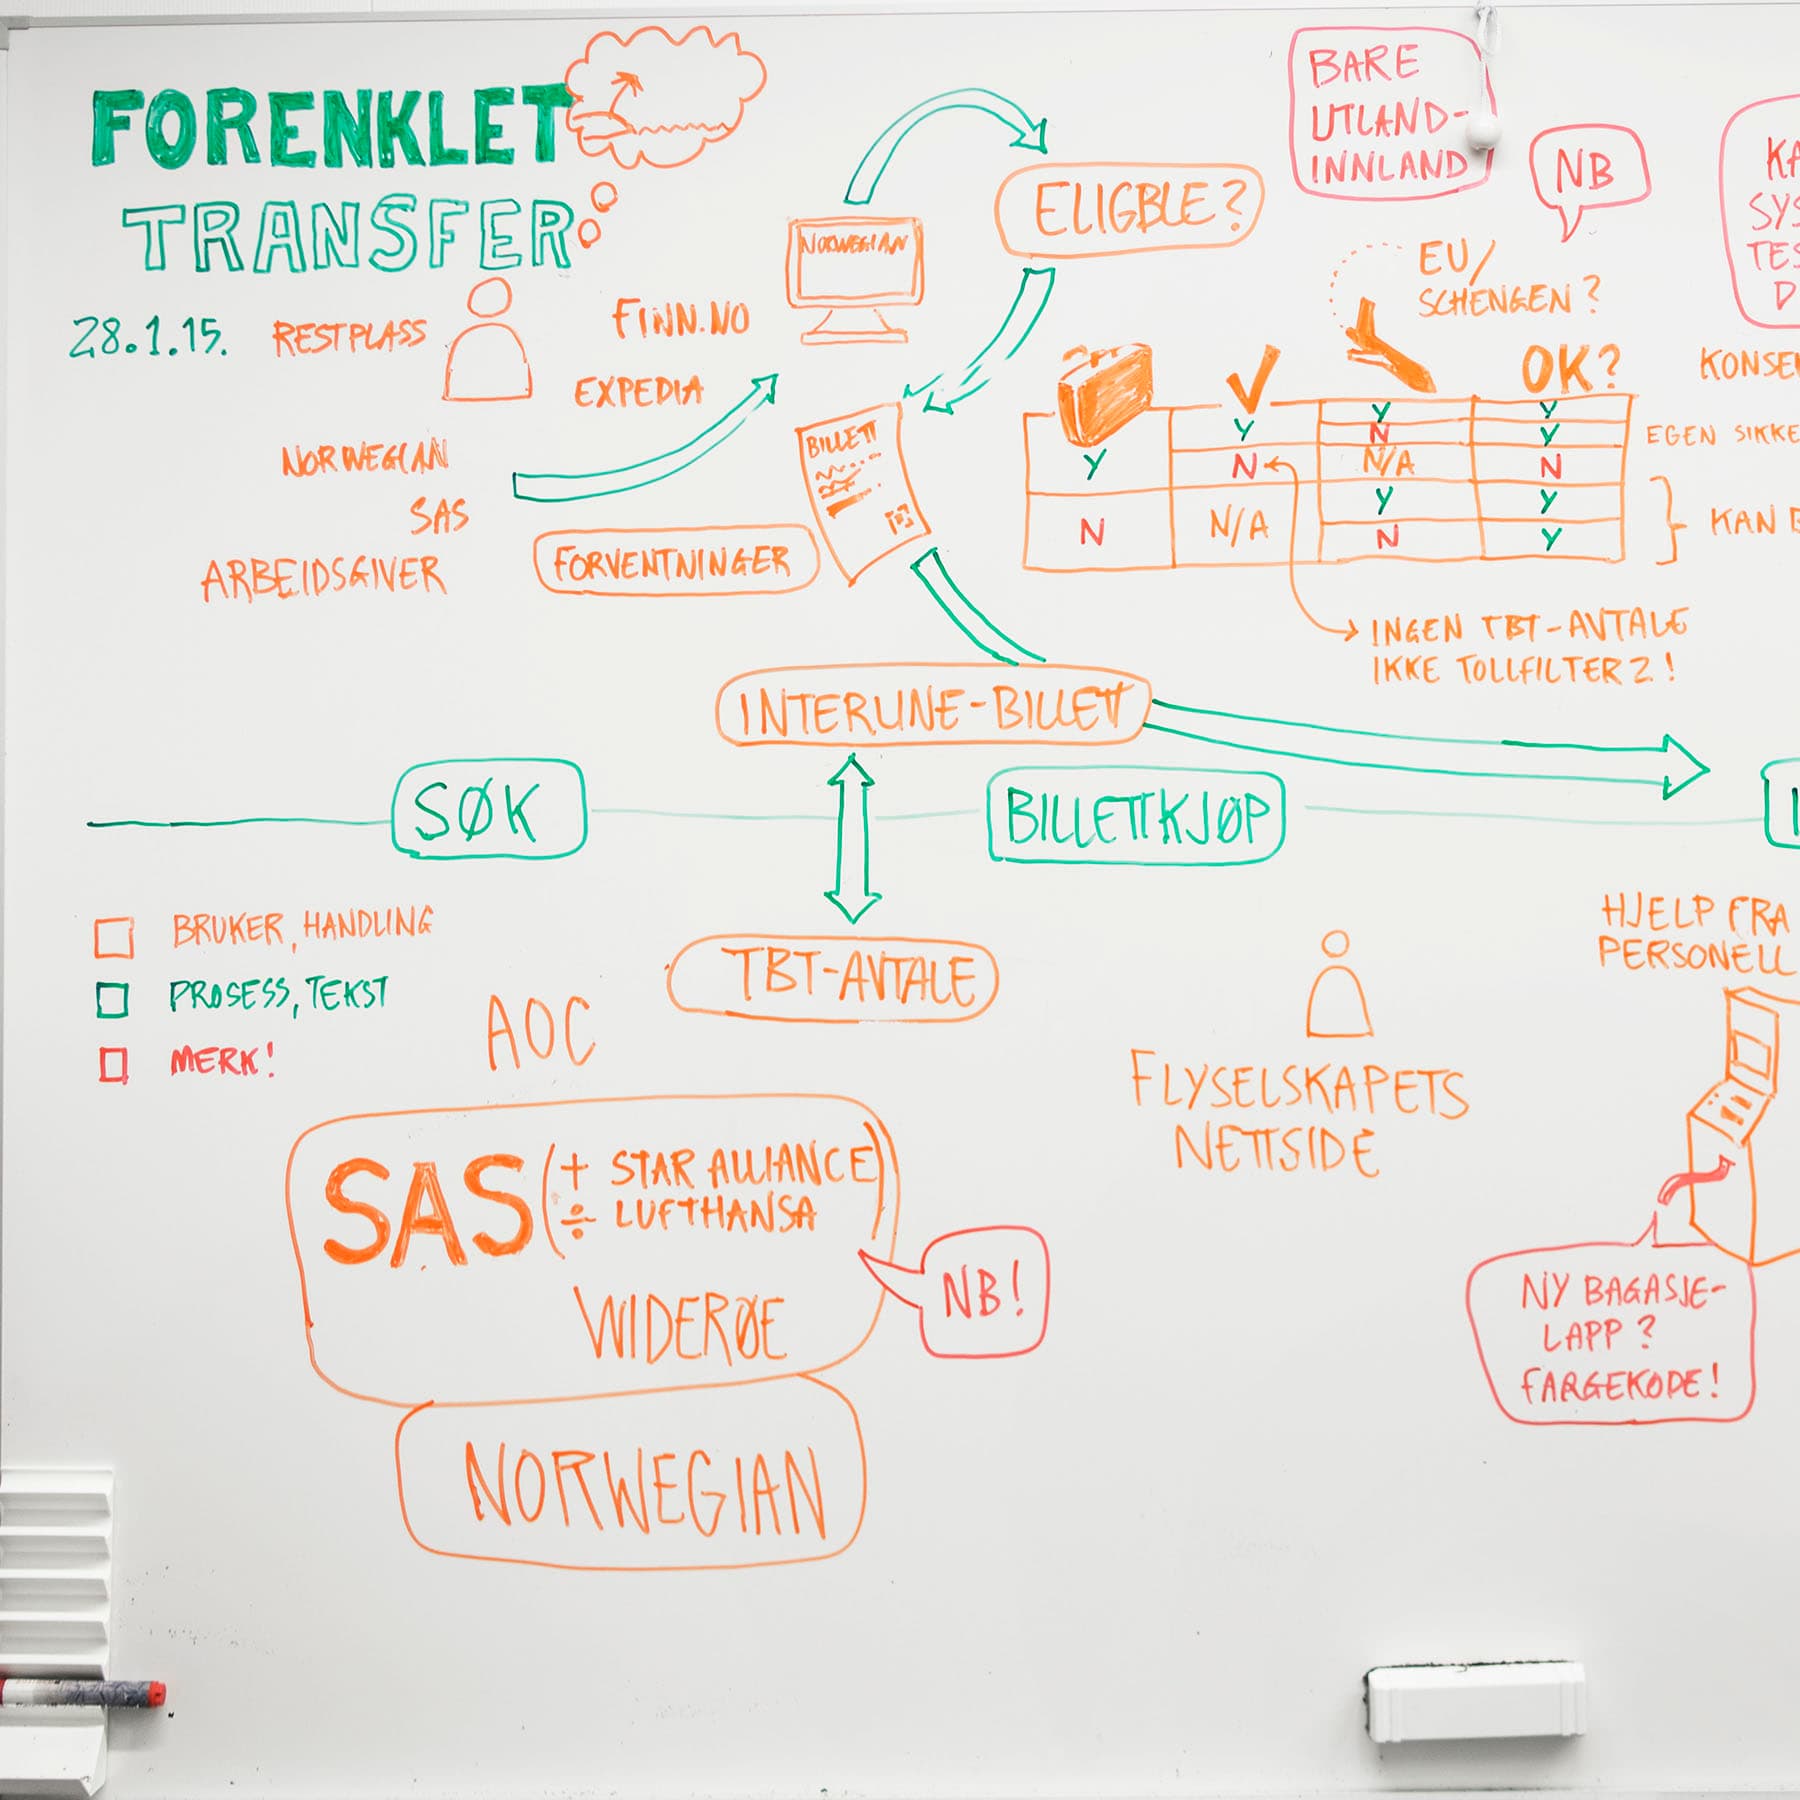 FORENKLET
TRANSFER
28.1.15.
RESTPLASS
FINN.NO
EXPEDIA
NORWEGIAN
SAS
ARBEIDSGIVER
NORWEGIAN
ELIGBLE?
BILLETT
FORVENTNINGER
BARE
UTLAND-
INNLAND
NB
KA
SYS
TES
D
EU/
SCHENGEN?
OK?
KONSE
Y Y
Y N Y EGEN SIKKE
Y N N/A N
Y Y
N N/A N Y
KAN B
INGEN TBT-AVTALE
IKKE TOLLFILTER 2!
INTERLINE-BILLETT
SØK
BILLETTKJØP
BRUKER, HANDLING
PROSESS, TEKST
MERK!
TBT-AVTALE
AOC
SAS (+ STAR ALLIANCE)
÷ LUFTHANSA
WIDERØE
NB!
NORWEGIAN
FLYSELSKAPETS
NETTSIDE
HJELP FRA
PERSONELL
NY BAGASJE-
LAPP?
FARGEKODE!